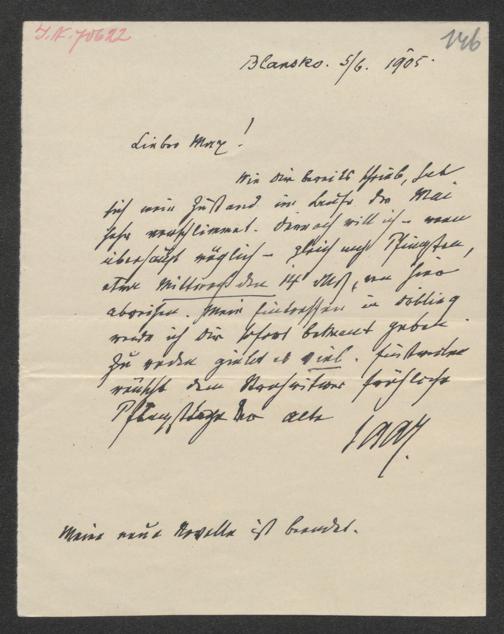 J.N. 70622
146
Blansko. 5/6. 1905.
Lieber Max!
Wie Dir bereits schrieb, hat
sich mein Zustand im Laufe des Mai
sehr verschlimmert. Dennoch will ich – wenn
überhaupt möglich – gleich nach Pfingsten,
etwa Mittwoch den 14 dss, von hier
abreisen. Mein Eintreffen in Döbling
werde ich Dir sofort bekannt geben.
Zu reden giebt es viel. Einstweilen
wünscht dem Strohwitwer fröhliche
Pfingsttage der alte
Saar.
Meine neue Novelle ist beendet.